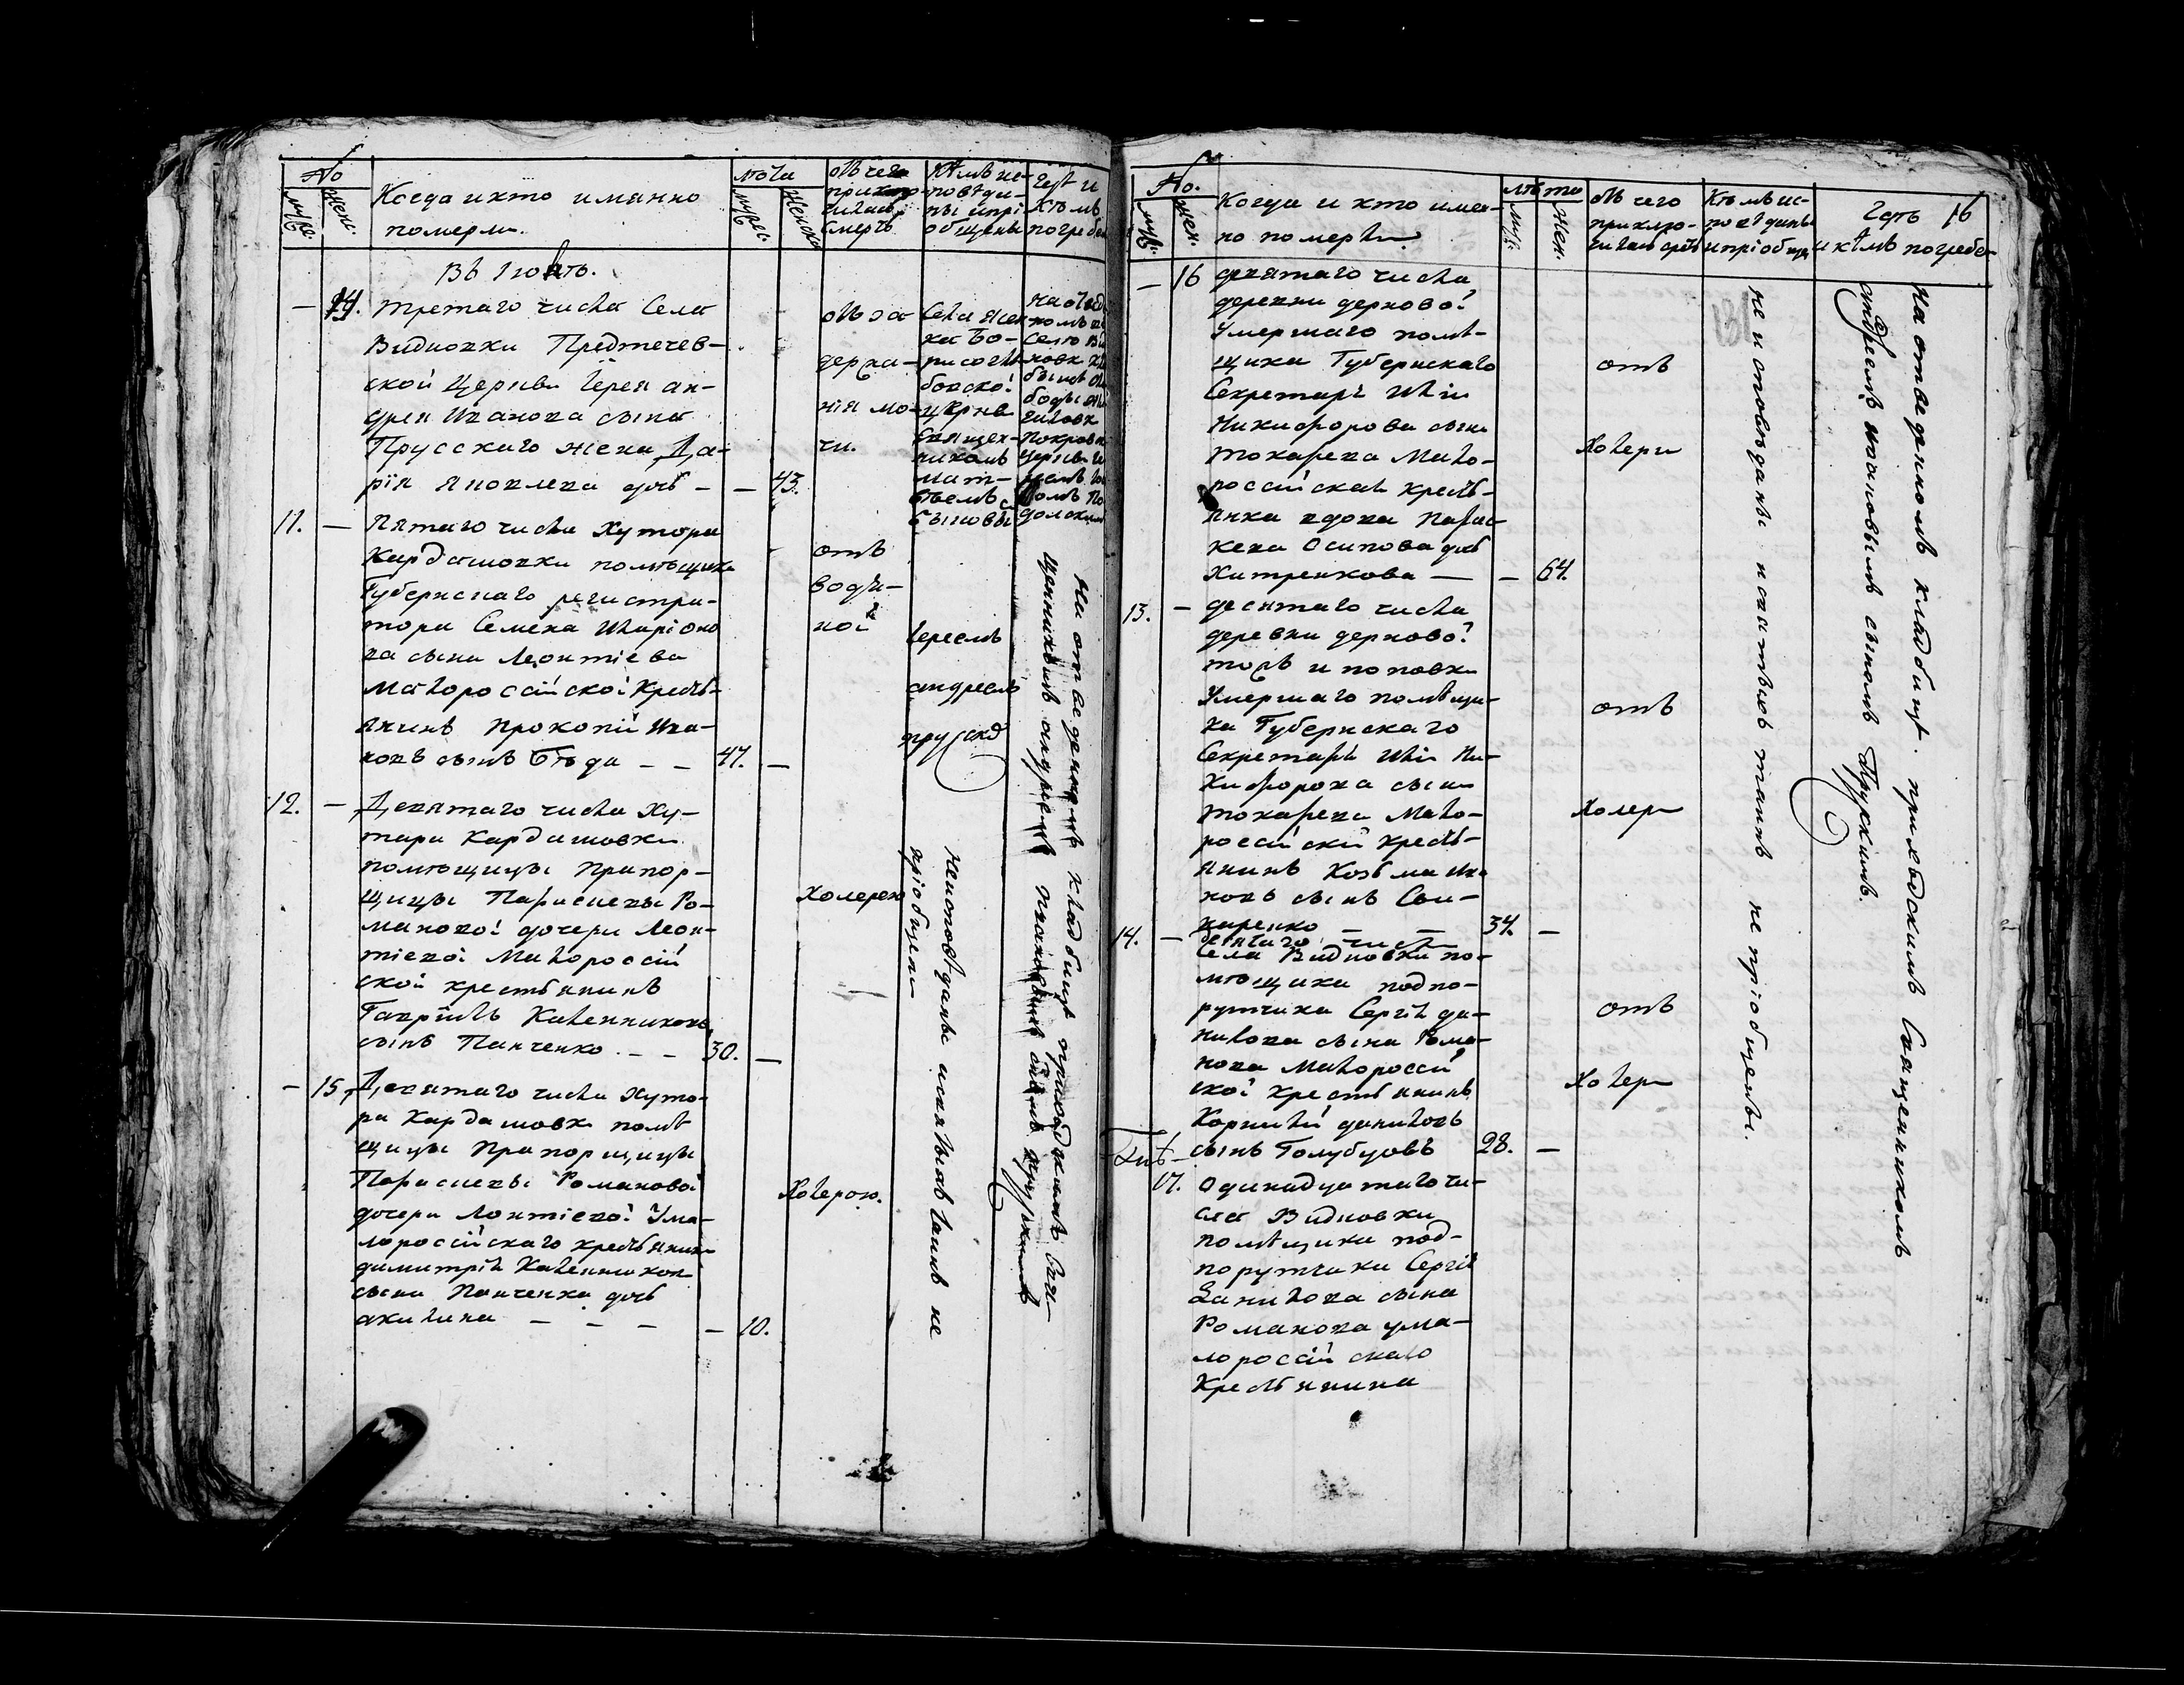 №
муже:
жен:
Когда и кто иманно
померли.
лѣта
мужес:
женска
отъ чего
приклю-
чилась
смерть
Кѣмъ ис-
повѣды-
ны и прі
общены
Гдѣ и
Кѣмъ
погребен
Въ Іюлѣ.
— 14. третаго числа Села
Видновки Предтечев-
ской Церкви Іерея ан-
дрея Иванова сына
Прусскаго жена Да-
рія Яковлева дочь — — 43.
отъ за
держа-
нія мо-
чи.
Села Ясен
ка Бо-
рисоглѣ
бовско!
церкве
Священ-
никомъ
11. — Пятаго числа Хутора
Кардашовки помѣщика
Губернскаго регистра-
тора Семена Иларіоно
ва сына Леонтіева
Малороссійской кресть-
янинъ Прокопій Ива-
новъ сынъ Бѣда — — 47. —
отъ
водя-
ной
Іереемъ
андреемъ
12. — Девятаго числа Ху-
тора Кардашовки
помѣщицы Прапор-
щицы Параскевы Ро-
мановой дочери Леон-
тіевой Малороссій
ской крестьянинъ
Гавріилъ Калениковъ
сынъ Панченко — — 30. —
Холерою
— 15. Девятаго числа Хуто-
ра Кардашовки помѣ
щицы Прапорщицы
Параскевы Романовой
дочери Лонтіевой Ума-
лороссійскаго крестьянина
димитрія Каленикова
сына Панченка дочь
акилина — — — — 10.
Холерою.
неисповѣданы и святыхъ таинъ не
пріобщены
На отведенномъ кладбищѣ приходскимъ Свя-
щенникомъ андреемъ Ивановымъ сыномъ Прусскимъ
№.
муж:
жен.
Когда и кто имен-
но померли
лѣта
муж:
жен.
отъ чего
приклю-
чилась смерть
Кѣмъ ис-
повѣданы
и пріобще
Гдѣ 16
и кѣмъ погребе-
— 16 девятаго числа
деревни дерново!
Умершаго помѣ-
щика Губернскаго
Секретаря Ильи
Никифорова сына
токарева Мало-
россійская кресть-
янка вдова Парас-
кева Осипова дочь
Хитренкова — — 64.
отъ
Холери
13. — десятаго числа
деревни дерново!
тожъ и поповки
Умершаго помѣщи-
ка Губернскаго
Секретаря Ильи Ни-
кифорова сына
токарева Мало-
россійскій кресть-
янинъ Козьма Ива
новъ сынъ Сви-
наренко — — 34. —
отъ
Холери
14. — десятаго числа
Села Видновки по-
мѣщика подпо-
рутчика Сергія да-
нилова сына Рома-
нова Малороссій
ской крестьянинъ
Корнилій даниловъ
сынъ Голубцовъ 28. —
отъ
Холери
17. Одинадцатаго чи-
сла Видновки
помѣщика под-
порутчика Сергія
Данилова сына
Романова ума-
лороссійскаго
Крестьянина
не исповѣданы и святыхъ таинъ не пріобщены.
На отведенномъ кладбищѣ приходскимъ Священникомъ
андреемъ ивановымъ сыномъ Прусскимъ.